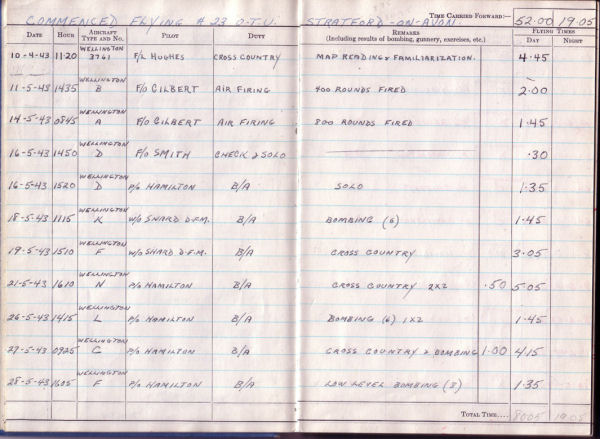 COMMENCED FLYING # 23 O.T.U. STRATFORD-ON-AVON. TIME CARRIED FORWARD:— 52.00 19.05
DATE HOUR AIRCRAFT TYPE AND NO. PILOT DUTY REMARKS (Including results of bombing, gunnery, exercises, etc.) FLYING TIMES DAY NIGHT
10-4-43 11·20 WELLINGTON 3761 F/L HUGHES CROSS COUNTRY MAP READING & FAMILIARIZATION. 4·45
11-5-43 1435 WELLINGTON B F/O GILBERT AIR FIRING 400 ROUNDS FIRED 2·00
14-5-43 0845 WELLINGTON A F/O GILBERT AIR FIRING 800 ROUNDS FIRED 1·45
16-5-43 1450 WELLINGTON D F/O SMITH CHECK & SOLO ·30
16-5-43 1520 WELLINGTON D P/O HAMILTON B/A SOLO 1·35
18-5-43 1115 WELLINGTON K W/O SNARD D.F.M. B/A BOMBING (6) 1·45
19-5-43 1510 WELLINGTON F W/O SNARD D.F.M. B/A CROSS COUNTRY 3·05
21-5-43 1610 WELLINGTON N P/O HAMILTON B/A CROSS COUNTRY 2X2 ·50 5·05
26-5-43 1415 WELLINGTON L P/O HAMILTON B/A BOMBING (6) 1X2 1·45
27-5-43 0925 WELLINGTON G P/O HAMILTON B/A CROSS COUNTRY & BOMBING 1·00 4·15
28-5-43 1605 WELLINGTON F P/O HAMILTON B/A LOW LEVEL BOMBING (8) 1·35
TOTAL TIME.... 80.05 19.05